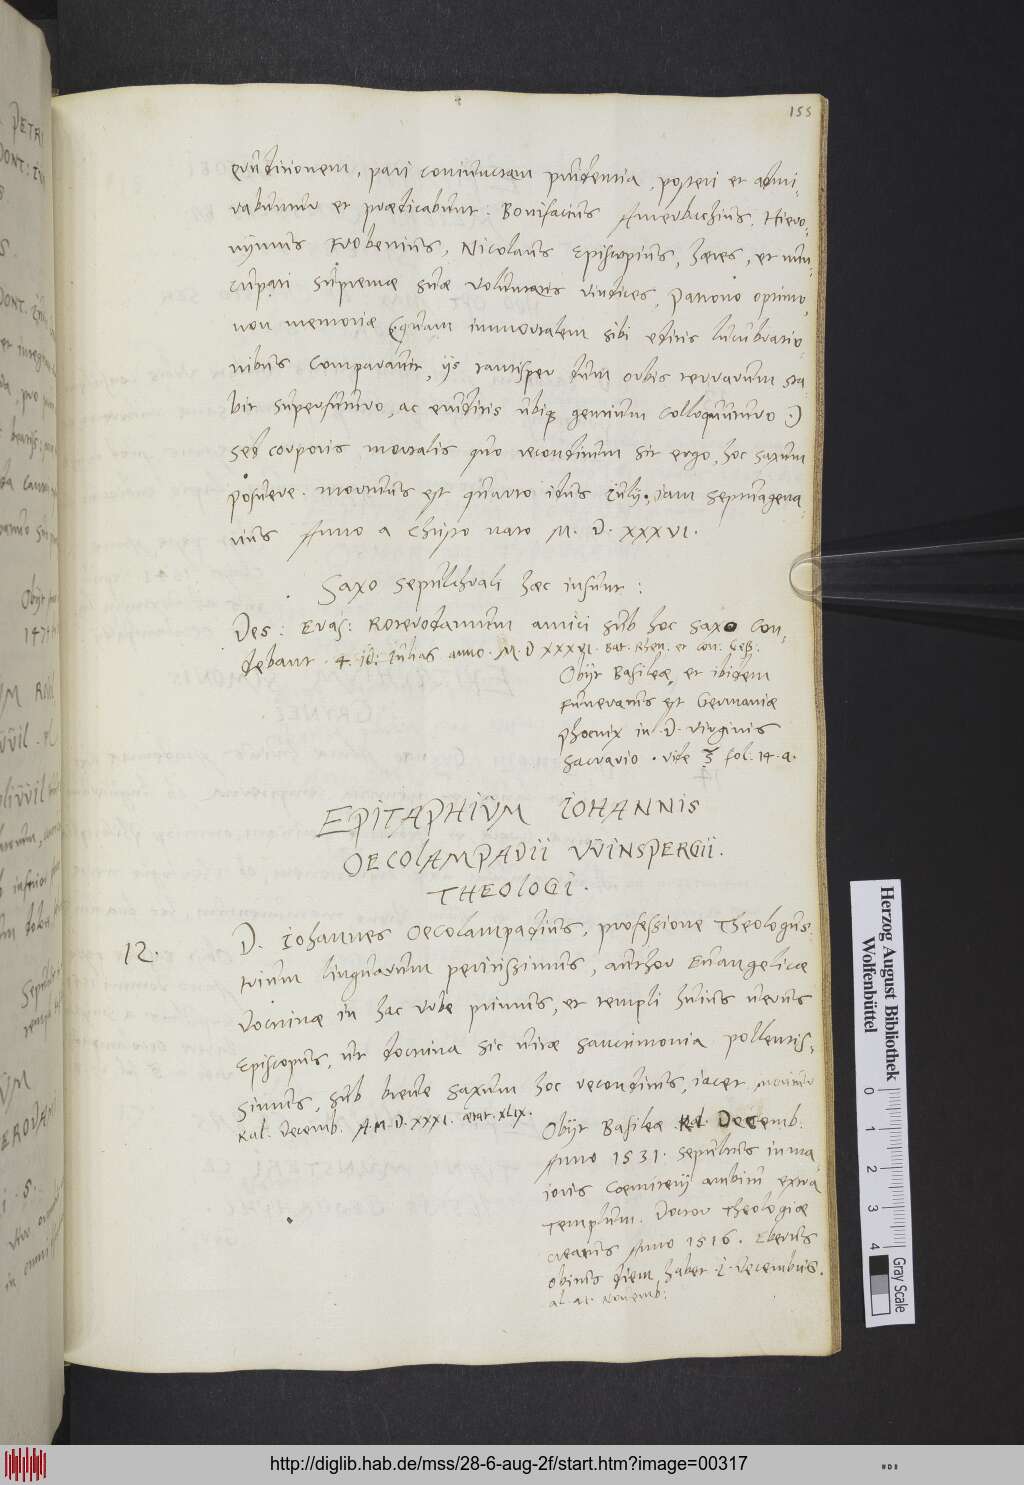 155
eruditionem, pari coniunctam prudentia, posteri et admi-
rabuntur et prædicabunt: Bonifacius Amerbachius, Hiero-
nymus Frobenius, Nicolaus Episcopius, hæres, et nun-
cupati supremæ suæ voluntatis vindices, Patrono optimo,
non memoriæ (quam immortalem sibi editis lucubratio-
nibus comparavit, ijs tantisper dum orbis terrarum sta-
bit superfuturo, ac eruditis ubiq gentium colloquuturo.)
sed corporis mortalis quo reconditum sit ergo, hoc saxum
posuere. mortuus est quarto idus iulij, iam septuagena-
rius Anno a Christo nato M. D. XXXVI.
Saxo sepulchrali hæc insunt:
Des: Eras: Roterodamum amici sub hoc saxo con-
debant. 4. id: iulias anno. M. D XXXVI. Bat. Rhen. et Con.
Obijt Basileæ, et ibidem
funeratus est Germaniæ
phœnix in D. Virginis
sacrario. vide fol. 14. a.
14
EPITAPHIUM IOHANNIS
OECOLAMPADII VVINSPERGII.
THEOLOGI.
12.
D. Iohannes Oecolampadius, professione Theologus:
trium linguarum peritissimus, author Evangelicæ
Doctrinæ in hac urbe primus, et templi huius verus
Episcopus, ut doctrina sic vitæ sanctimonia pollentis-
simus, sub breve saxum hoc reconditus, iacet,
Kal. Decemb. A. M. D. XXXI. ætat. XLIX.
Obijt Basileæ Kl. Decemb.
Anno 1531. Sepultus in ma-
ioris Cœmiterij ambitu extra
templum. Doctor Theologiæ
creatus Anno 1516. Eberus
obitus diem habet 1. Decembris.
al. at. Novemb:
PETRI
Obijt
1474
Herzog August Bibliothek
Wolfenbüttel
0 1 2 3 4
Gray Scale
http://diglib.hab.de/mss/28-6-aug-2f/start.htm?image=00317